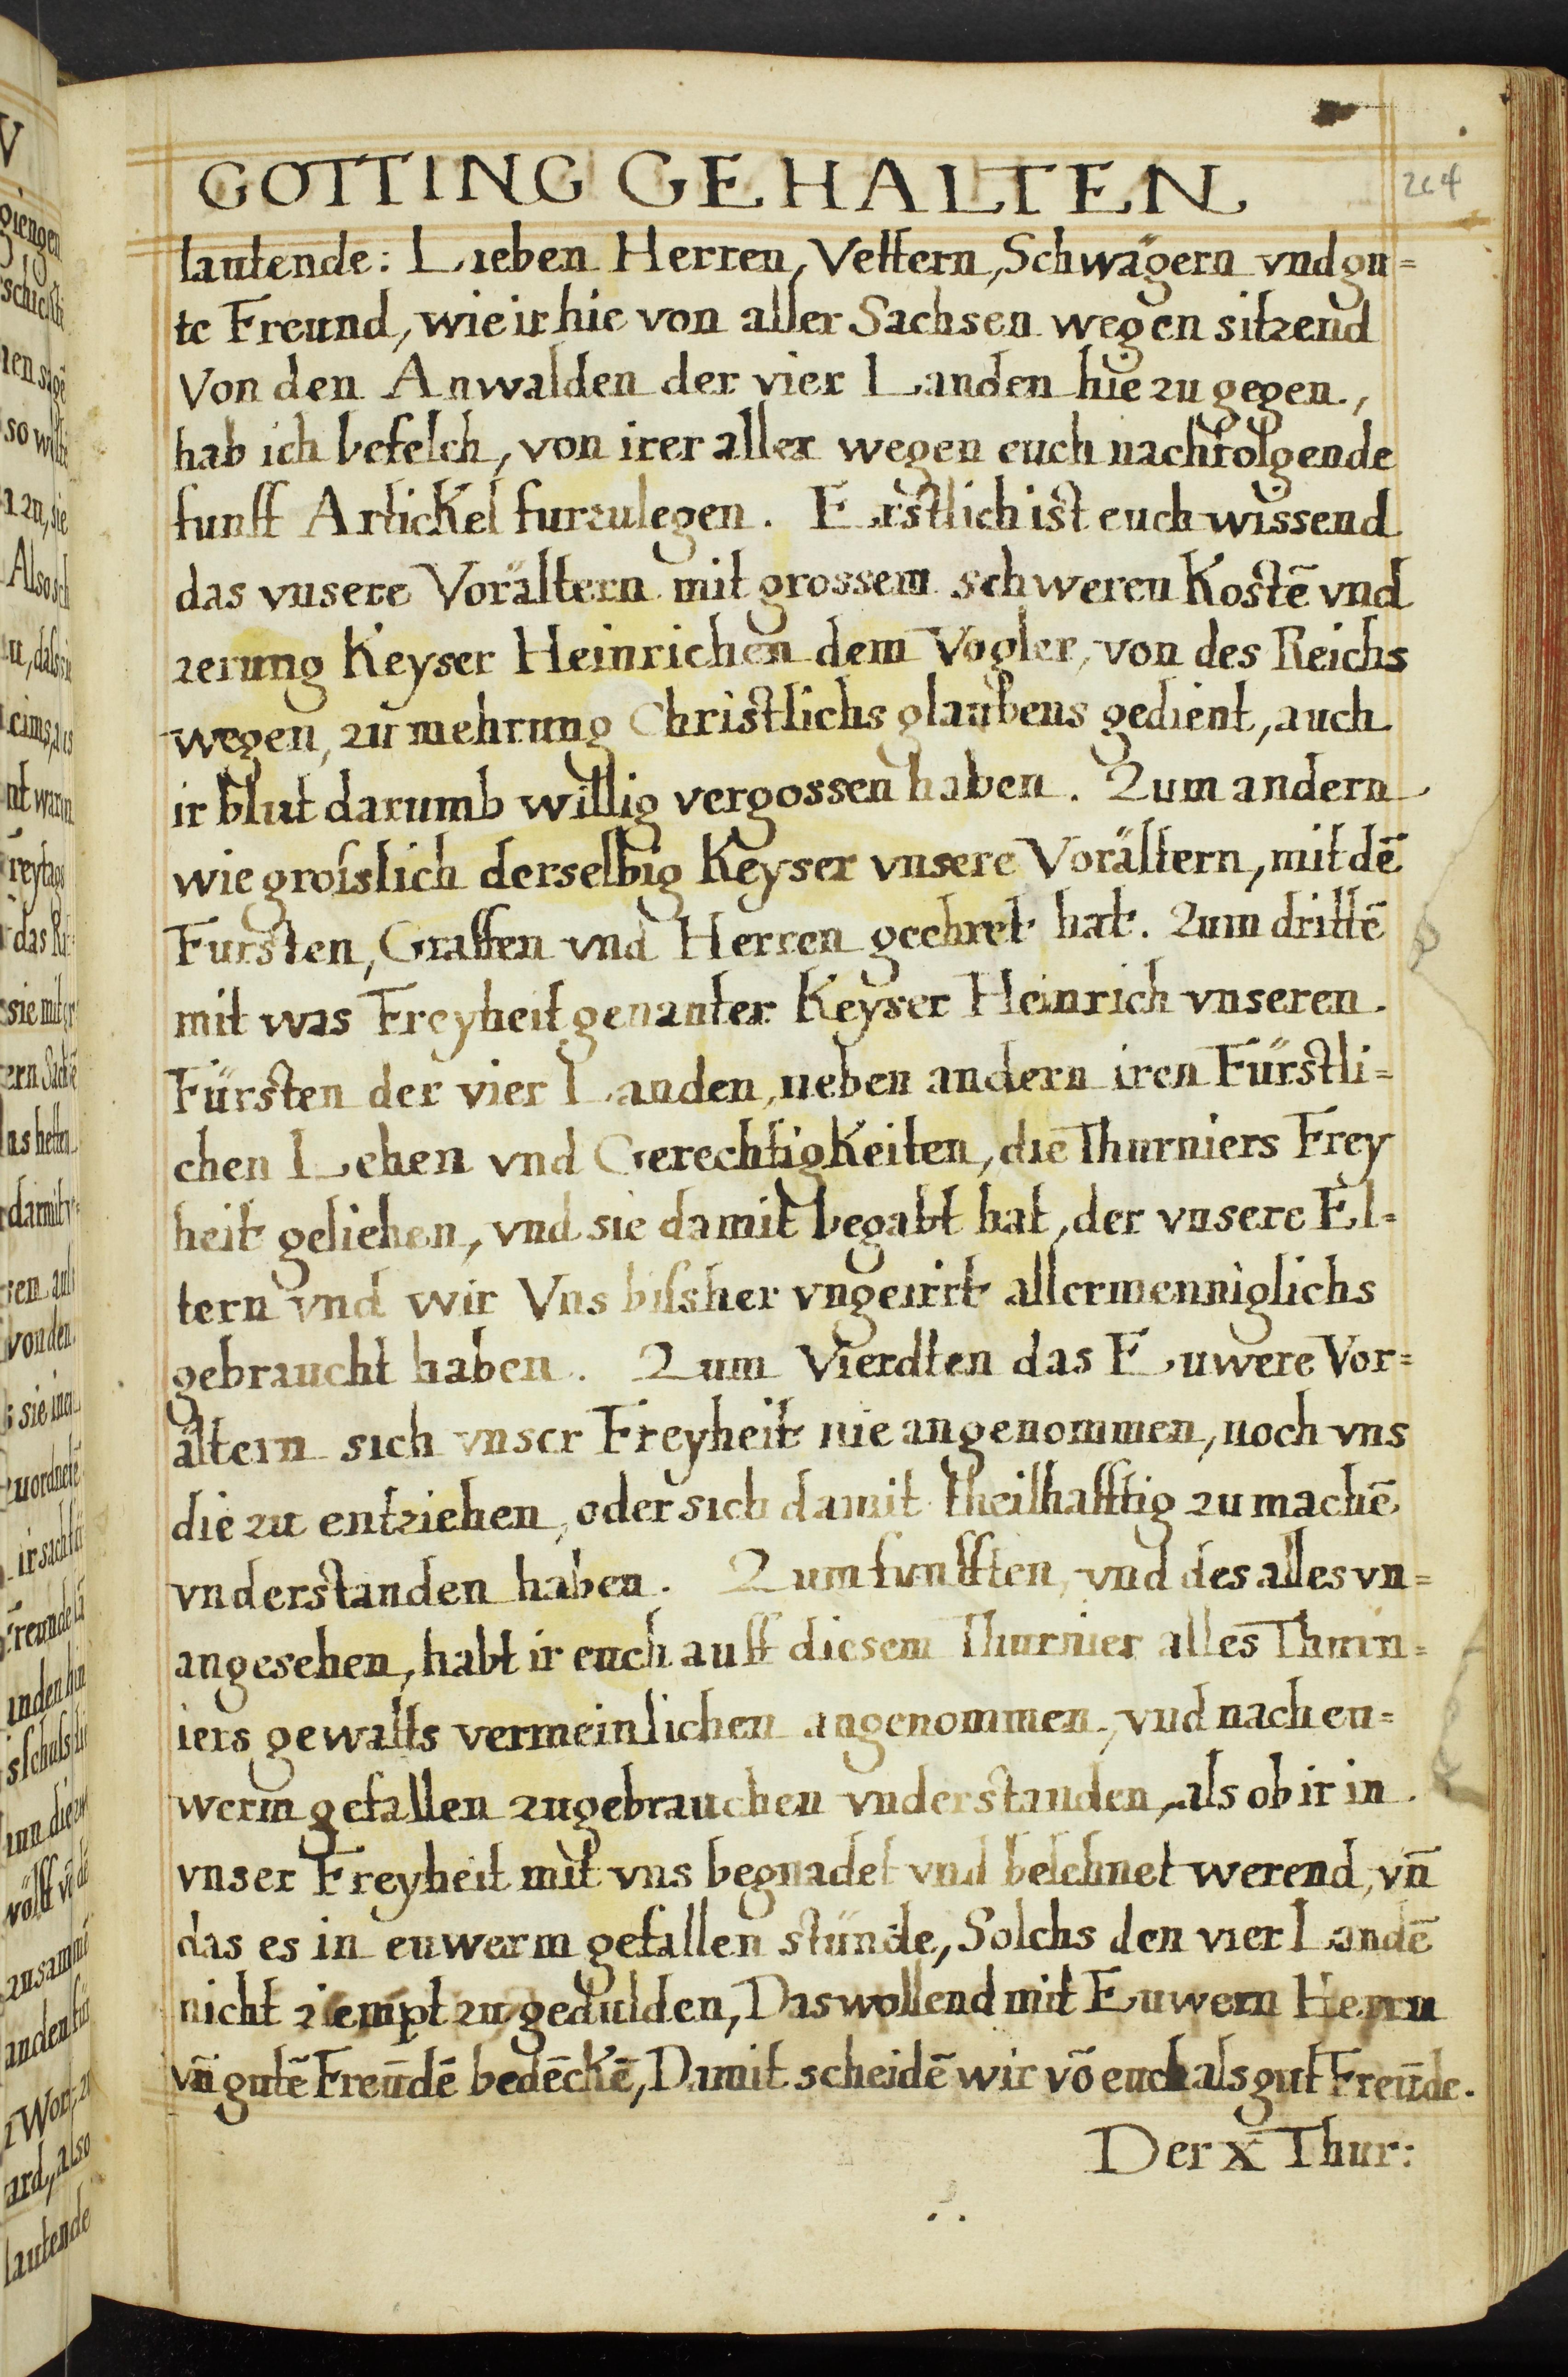 GOTTING GEHALTEN
204
lautende: Lieben Herren, Vettern, Schwägern vnd gu=
te Freund, wie ir hie von aller Sachsen wegen sitzend
Von den Anwalden der vier Landen hie zu gegen,
hab ich befelch, von irer aller wegen euch nachfolgende
funff Artickel furzulegen. Erstlich ist euch wissend
das vnsere Vorältern mit grossem schweren Kostē vnd
zerung Keyser Heinrichen dem Vogler, von des Reichs
wegen, zu mehrung Christlichs glaubens gedient, auch
ir blut darumb willig vergossen haben. Zum andern
wie groſslich derselbig Keyser vnsere Vorältern, mit dē
Fursten, Graffen vnd Herren geehret hat. Zum drittē
mit was Freyheit genanter Keyser Heinrich vnseren
Fürsten der vier Landen, neben andern iren Fürstli=
chen Lehen vnd Gerechtigkeiten, die Thurniers Frey
heit geliehen, vnd sie damit begabt hat, der vnsere El=
tern vnd wir Vns biſsher vngeirrt allermenniglichs
gebraucht haben. Zum Vierdten das Euwere Vor=
ältern sich vnser Freyheit nie angenommen, noch vns
die zu entziehen, oder sich damit theilhafftig zu machē
vnderstanden haben. Zum funfften, vnd des alles vn=
angesehen, habt ir euch auff diesem Thurnier alles Thurn=
iers gewalts vermeinlichen angenommen, vnd nach eu=
werm gefallen zugebrauchen vnderstanden, als ob ir in
vnser Freyheit mit vns begnadet vnd belehnet werend, vn̄
das es in euwerm gefallen stünde, Solchs den vier Landē
nicht ziempt zu gedulden, Das wollend mit Euwern Herrn
vn̄ gutē Freūdē bedēckē, Damit scheidē wir vō euch als gut Freūde.
Der X Thur: